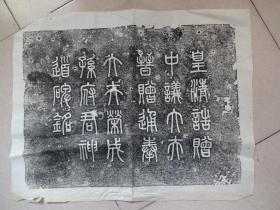 皇清誥贈
中議大夫
晉贈通奉
大夫榮成
孫府君神
道碑銘